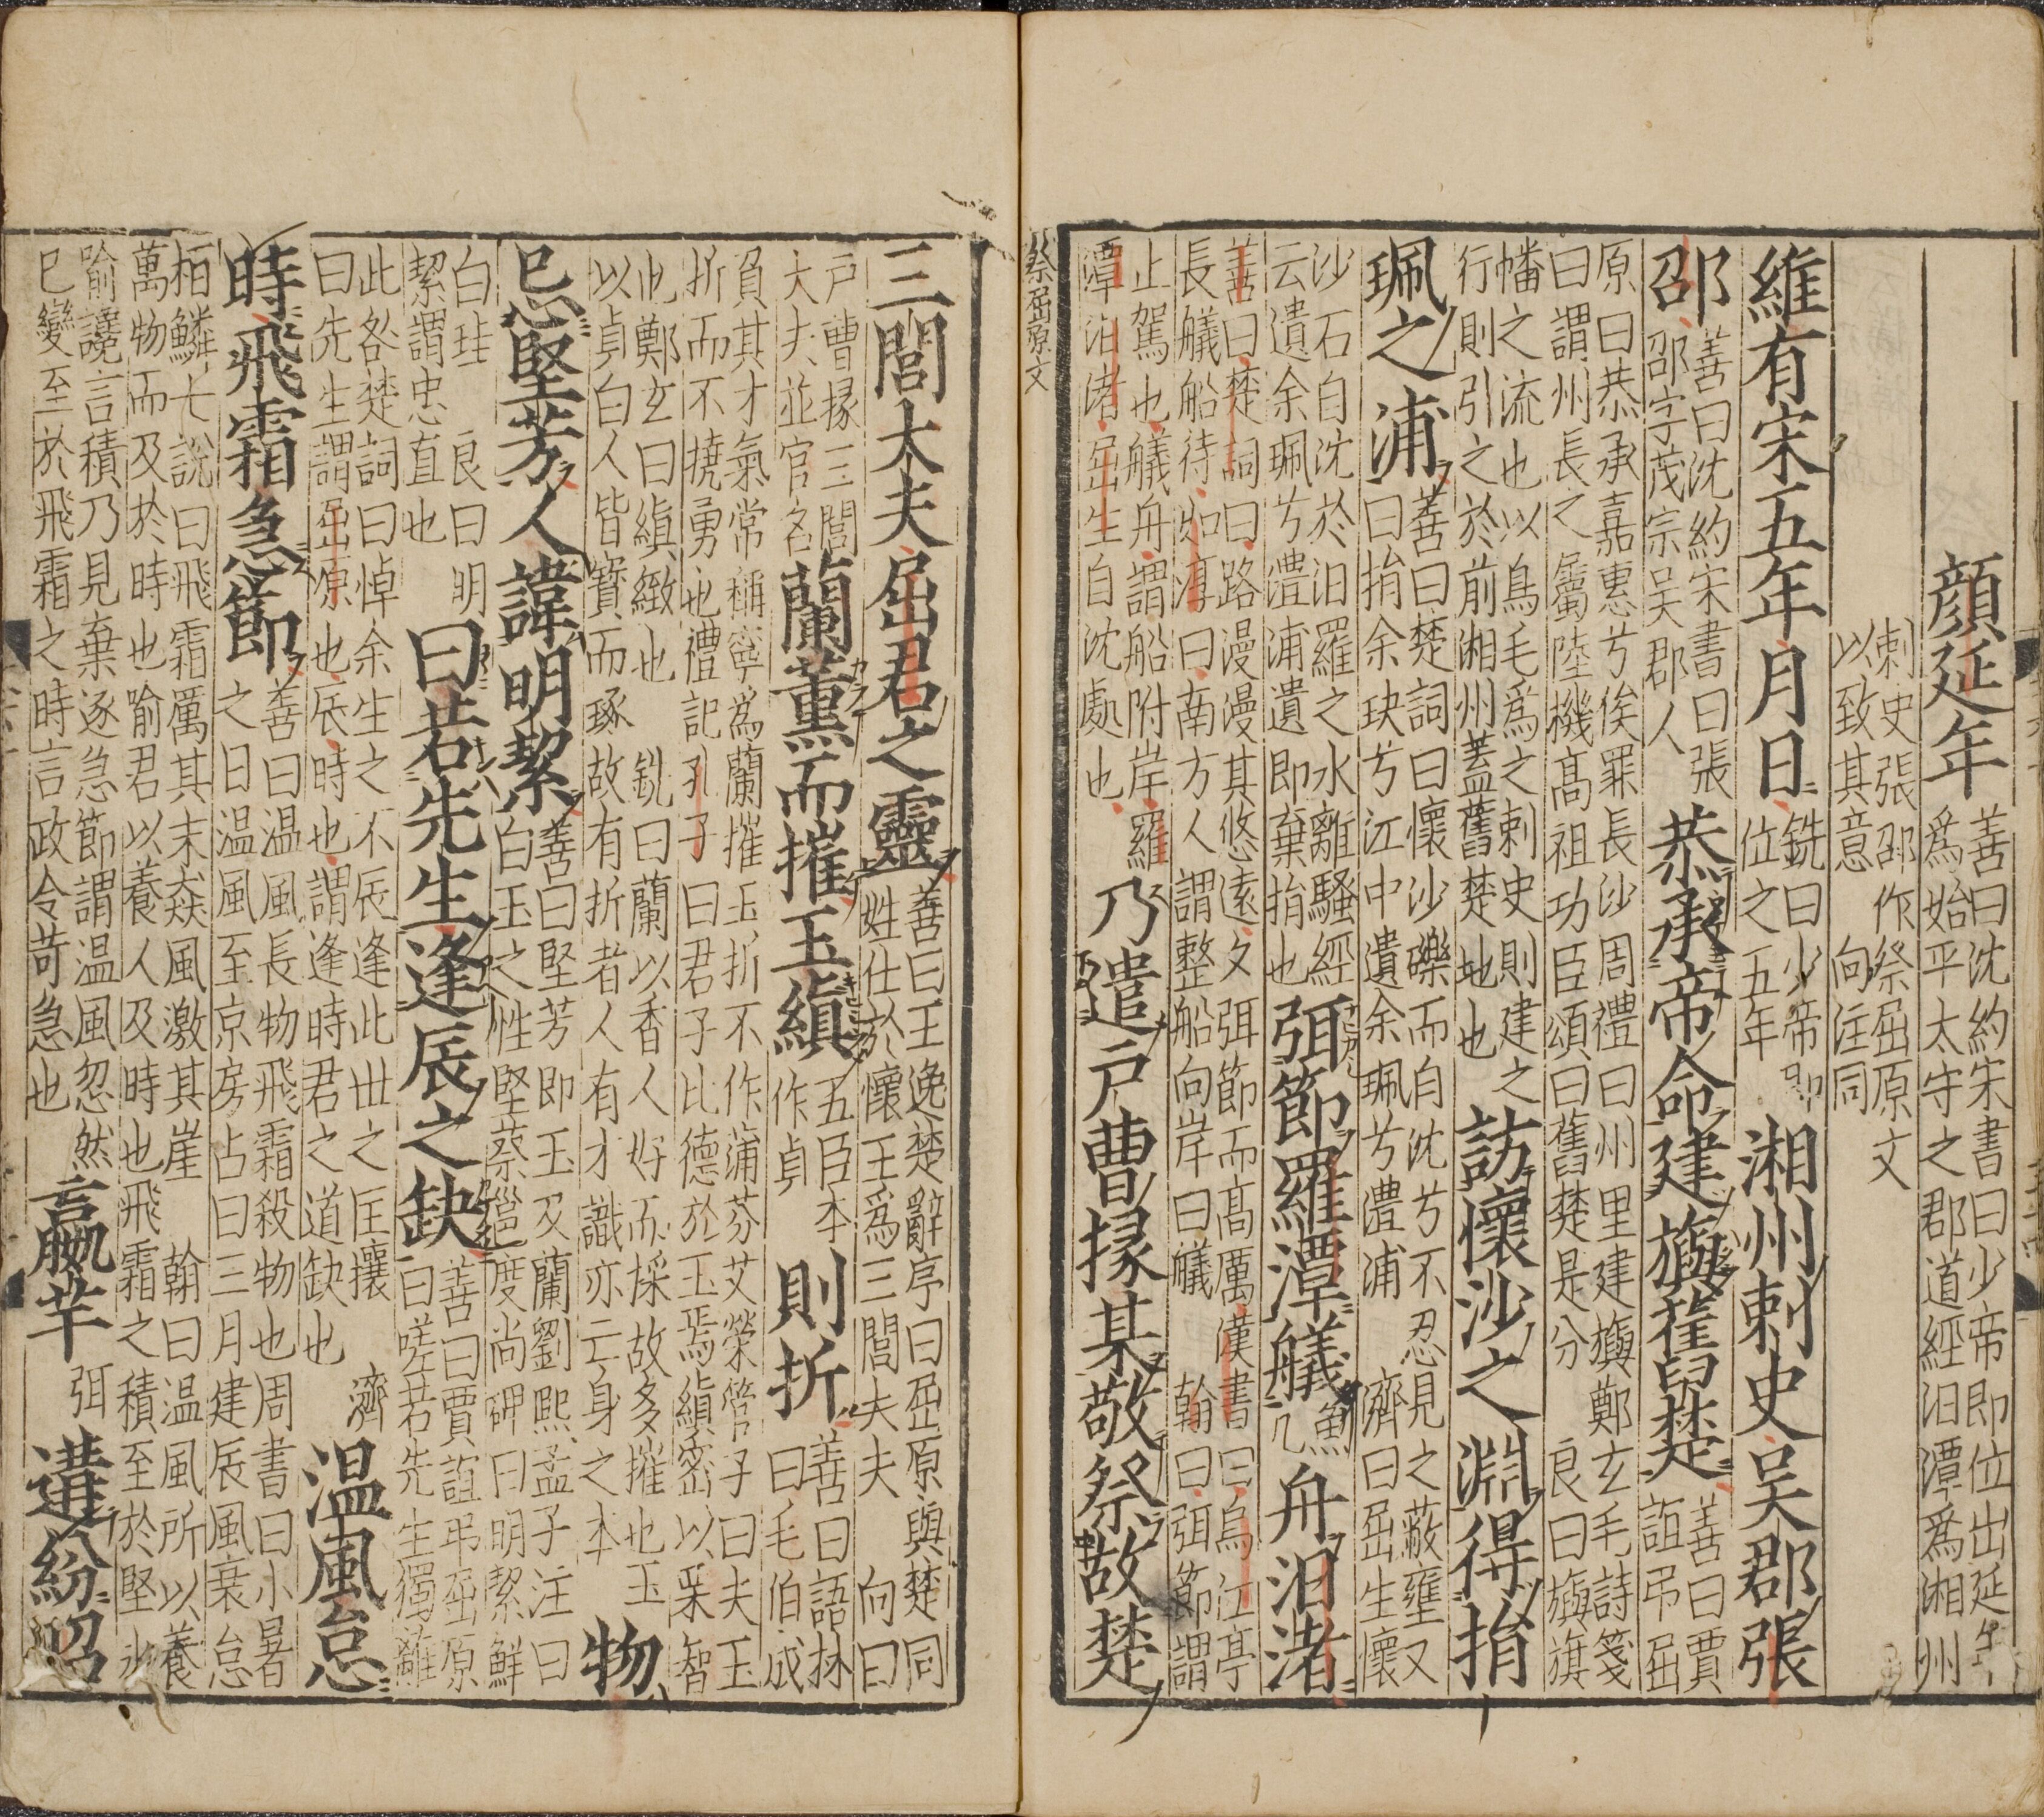 顔延年善曰沈約宋書曰少帝即位出延年爲始平太守之郡道經汨潭爲湘州
刺史張邵作祭屈原文以致其意 向注同
維有宋五年月日銑曰少帝即位之五年湘州刺史吴郡張
邵善曰沈約宋書曰張邵字茂宗吴郡人恭承帝命建旟舊楚善曰賈誼吊屈
原曰恭承嘉惠兮俟罪長沙周禮曰州里建旟鄭玄毛詩箋曰謂州長之屬陸機髙祖功臣頌曰舊楚是分 良曰旟旗
幡之流也以鳥毛爲之刺史則建之行則引之於前湘州蓋舊楚地也訪懷沙之淵得捐
珮之浦善曰楚詞曰懷沙礫而自沈兮不忍見之蔽壅又曰捐余玦兮江中遺余珮兮澧浦 濟曰屈生懷
沙石自沈於汨羅之水離騷經云遺余珮兮澧浦遺即棄捐也弭節羅潭艤魚几舟汨渚
善曰楚詞曰路漫漫其悠遠夂弭節而髙厲漢書曰烏江亭長艤船待如淳曰南方人謂整船向岸曰艤 翰曰弭節謂
止駕也艤舟謂船附岸羅潭汨渚屈生自沈處也乃遣戸曹掾某敬祭故楚
祭屈原文
三閭大夫屈君之靈善曰王逸楚辭序曰屈原與楚同姓仕於懷王爲三閭夫夫 向曰
戸曹掾三閭大夫並官名蘭薰而摧玉縝五臣本作貞則折善曰語林曰毛伯成
負其才氣常稱寧爲蘭摧玉折不作蒲芬艾榮管子曰夫玉折而不撓勇也禮記孔子曰君子比德於玉焉縝密以栗智
也鄭玄曰縝緻也 銑曰蘭以香人好而採故多摧也玉以貞白人皆寳而琢故有折者人有才識亦亡身之本物
忌堅芳人諱明絜善曰堅芳即玉及蘭劉熙孟子注曰白玉之性堅蔡邕度尚碑曰明絜鮮
白珪 良曰明絜謂忠直也曰若先生逢辰之缺善曰賈誼弔屈原曰嗟若先生獨離
此咎楚詞曰悼余生之不辰逢此丗之匡攘 濟曰先生謂屈原也辰時也謂逢時君之道缺也温風怠
時飛霜急節善曰温風長物飛霜殺物也周書曰小暑之日温風至京房占曰三月建辰風衰怠
栢鱗七說曰飛霜厲其末猋風激其崖 翰曰温風所以養萬物而及於時也喻君以養人及時也飛霜之積至於堅氷
喻讒言積乃見棄逐急節謂温風忽然已變至於飛霜之時言政令苛急也嬴芉弭遘紛昭